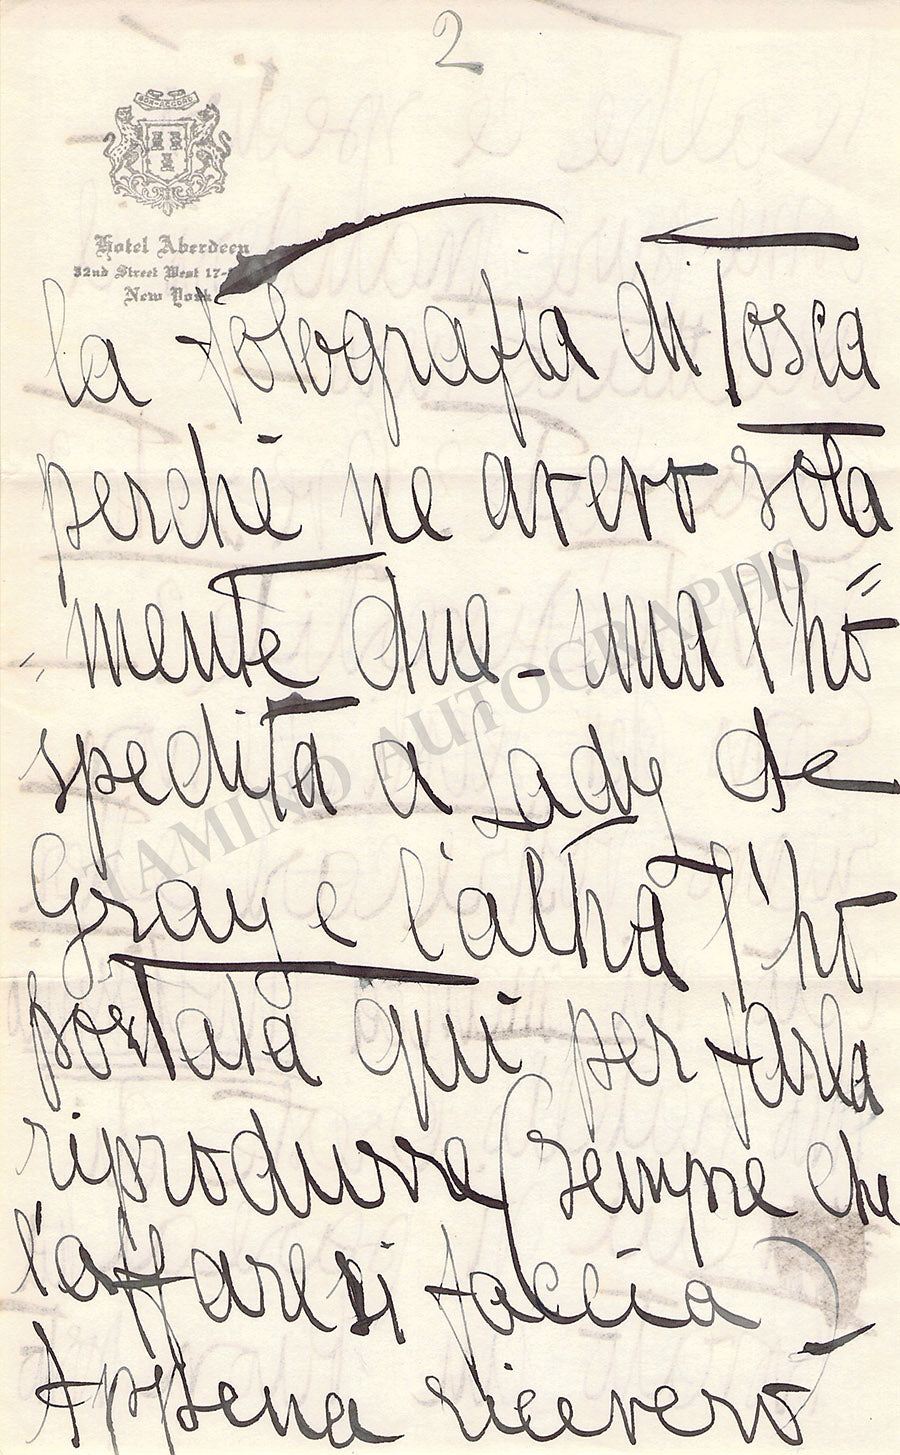 2
BON-ACCORD
Hotel Aberdeen
32nd Street West 17-
New York
la fotografia di Tosca
perchè ne avevo sola
mente due - una l'hò
spedita a Lady de
Gray e l'altra l'hò
portata qui per farla
riprodurre (sempre che
l'affare si faccia)
Appena riceverò
TAMINO AUTOGRAPHS